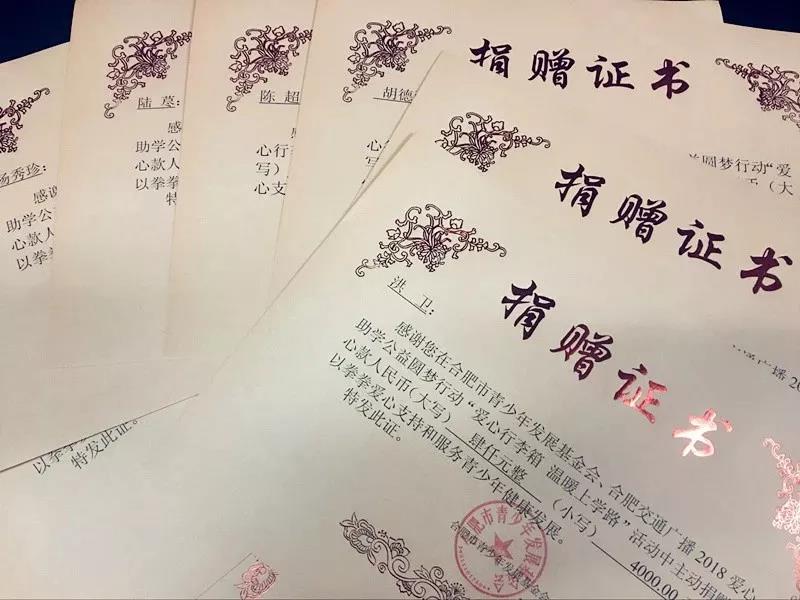 捐赠证书
杨秀珍:
感谢
助学公
心款人
以拳拳
陆莶:
感
助学公
心款人
以拳拳
特
陈超
心行
写)
心支
胡德
益圆梦行动“爱
币(大
捐赠证书
广播20
捐赠证书
洪卫:
感谢您在合肥市青少年发展基金会、合肥交通广播2018爱心
助学公益圆梦行动“爱心行李箱 温暖上学路”活动中主动捐赠
心款人民币(大写) 肆仟元整 (小写) 4000.00
以拳拳爱心支持和服务青少年健康发展。
特发此证。
合肥市青少年发展基金会
肥市青少年发展基金会
以拳拳
特发此证。